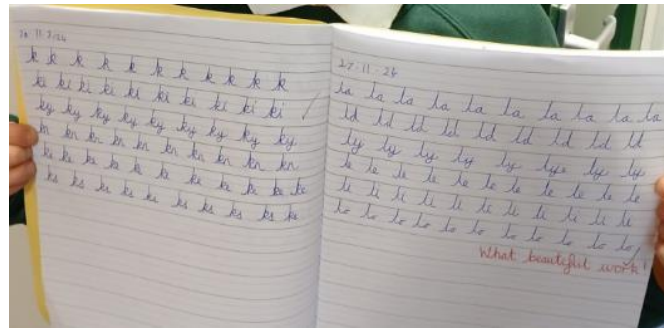 k k k k k k k k k k k
ki ki ki ki ki ki ki ki ki ki
ky ky ky ky ky ky ky ky ky
kn kn kn kn kn kn kn kn kn kn
ke ke ke ke ke ke ke ke ke ke
ks ks ks ks ks ks ks ks ks
27.11.24
la la la la la la la la la
ld ld ld ld ld ld ld ld
ly ly ly ly ly ly ly
le le le le le le le le le le
li li li li li li li li li li
lo lo lo lo lo lo lo lo lo lo lo
What beautiful work!